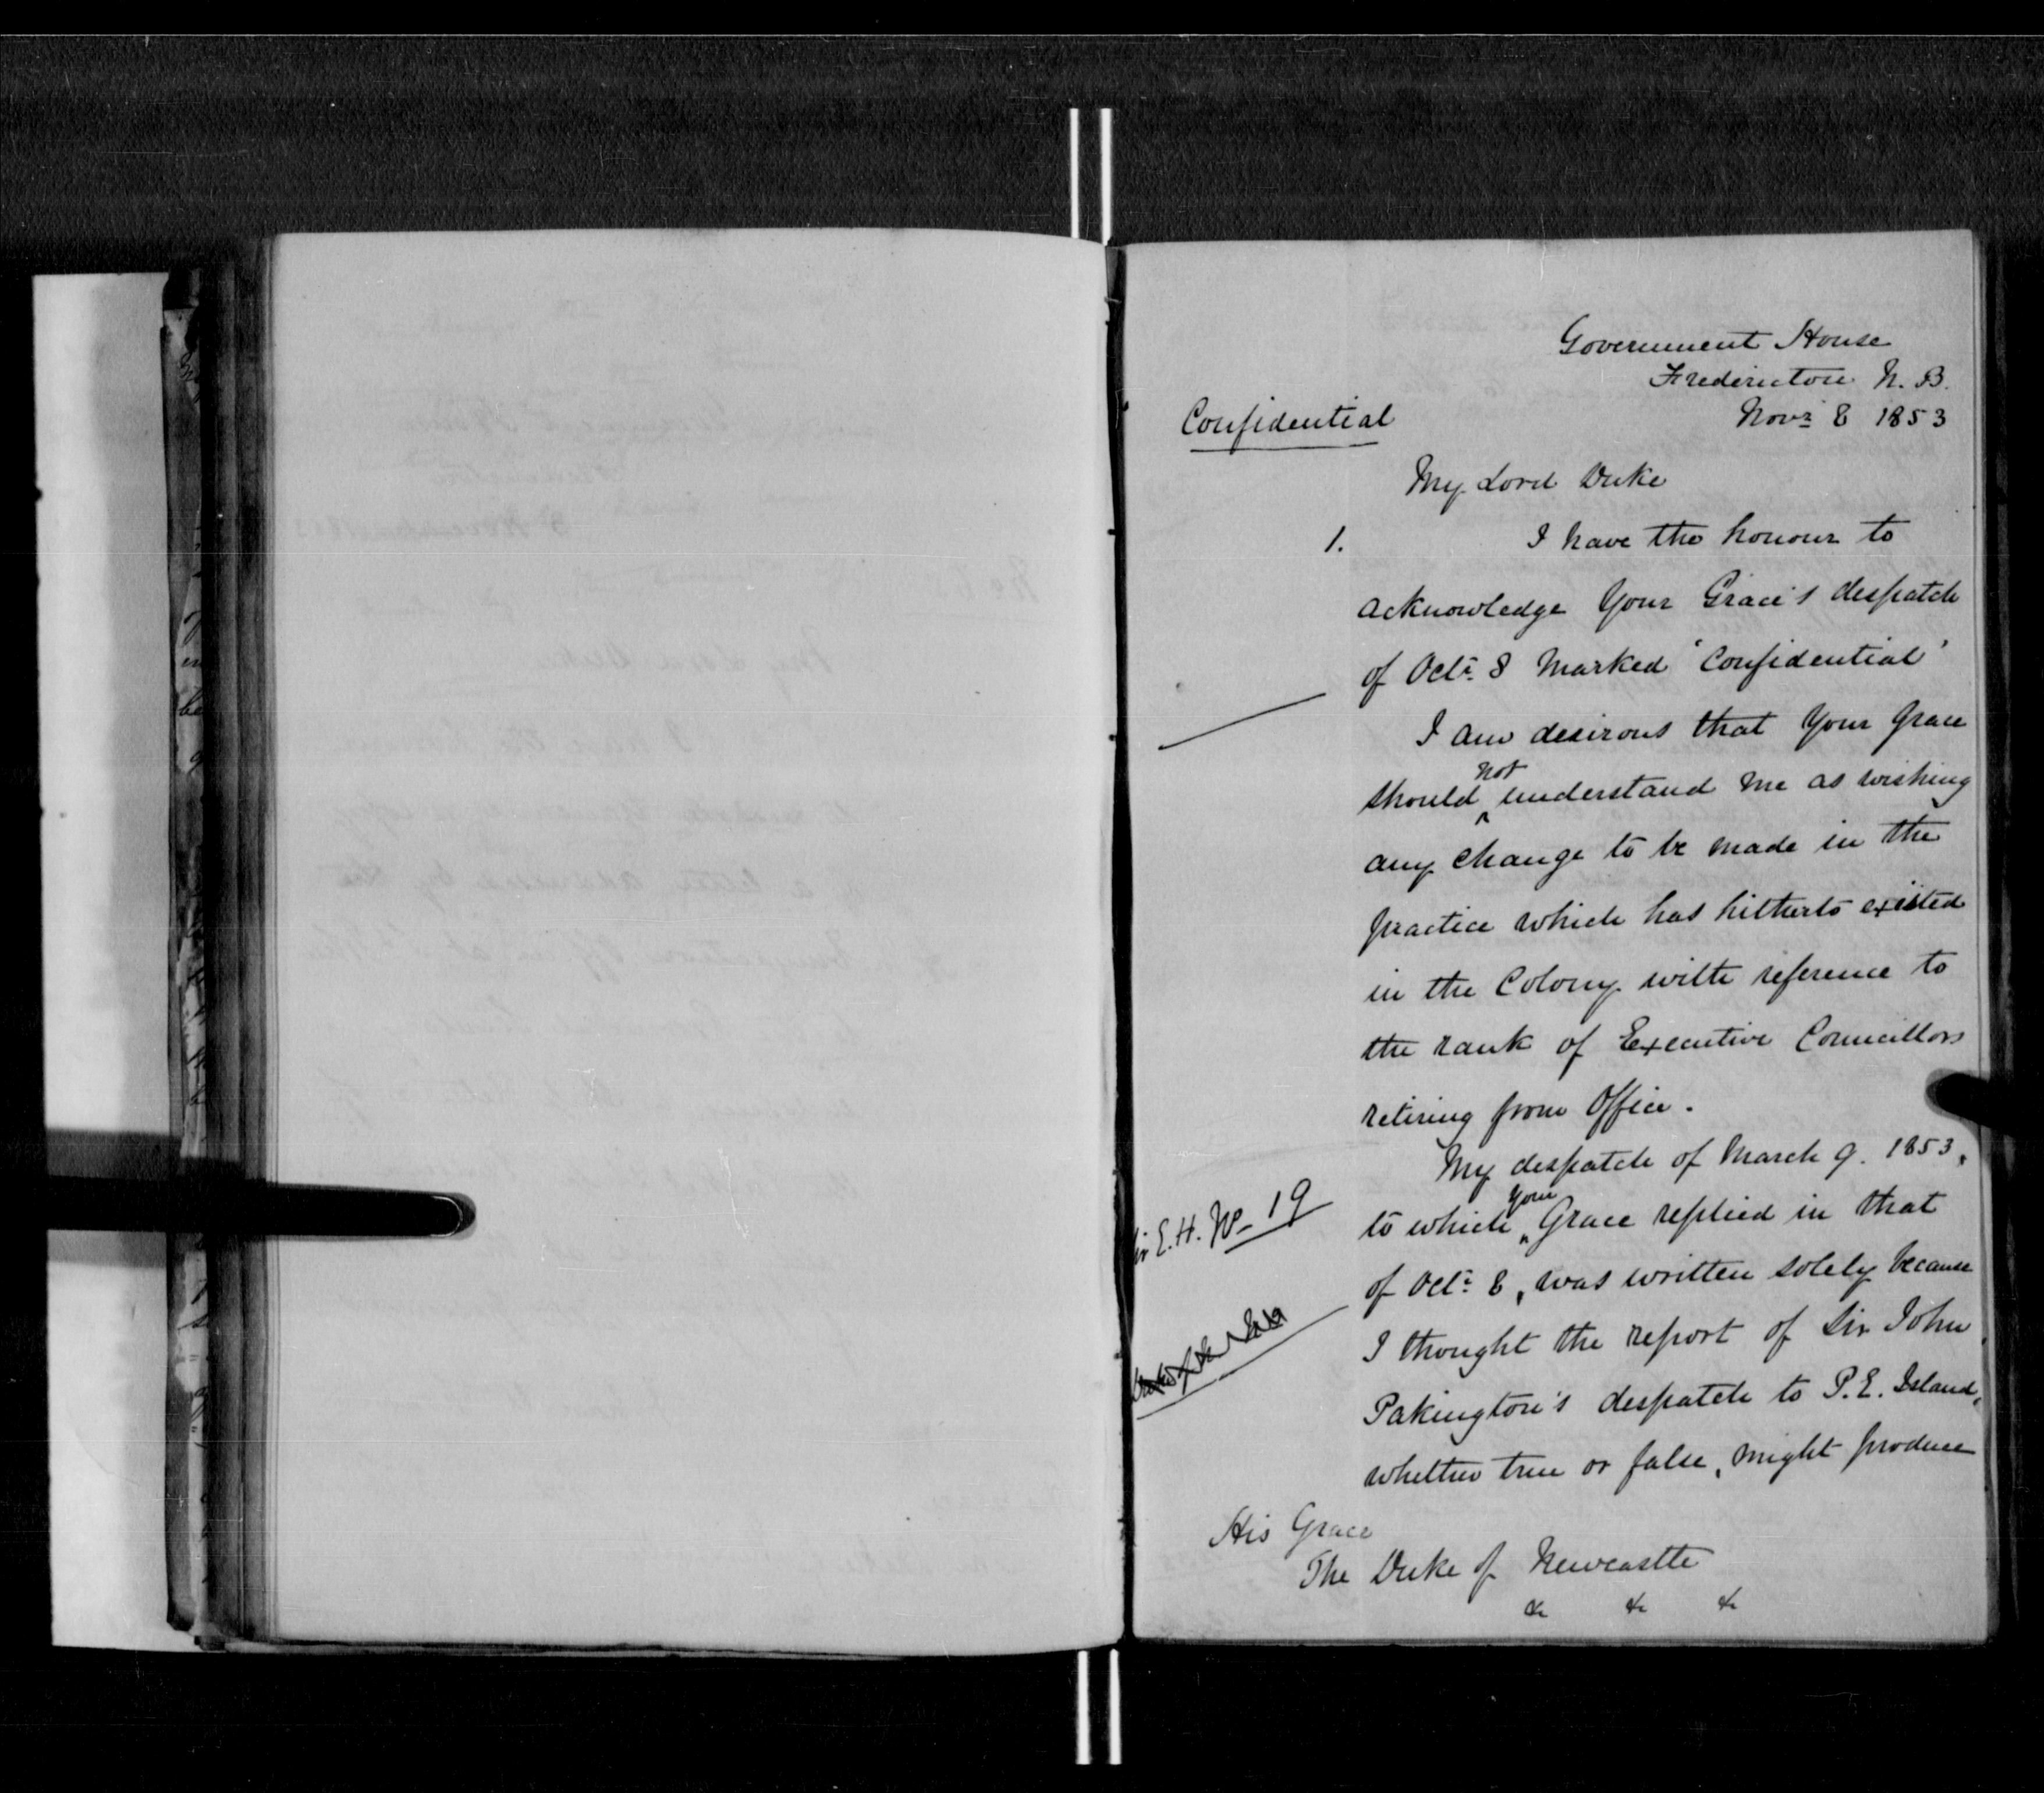 Government House
Fredericton N. B.
Novr 8 1853
Confidential
My Lord Duke
1. I have the honour to
acknowledge Your Grace's despatch
of Octr 8 Marked 'Confidential'
I am desirous that Your Grace
should not understand me as wishing
any change to be made in the
practice which has hitherto existed
in the Colony with reference to
the rank of Executive Councillors
retiring from Office.
My despatch of March 9. 1853,
E. H. No 19
to which your Grace replied in that
of Octr 8, was written solely because
I thought the report of Sir John
Pakington's despatch to P.E. Island,
whether true or false, might produce
His Grace
The Duke of Newcastle
&c &c &c